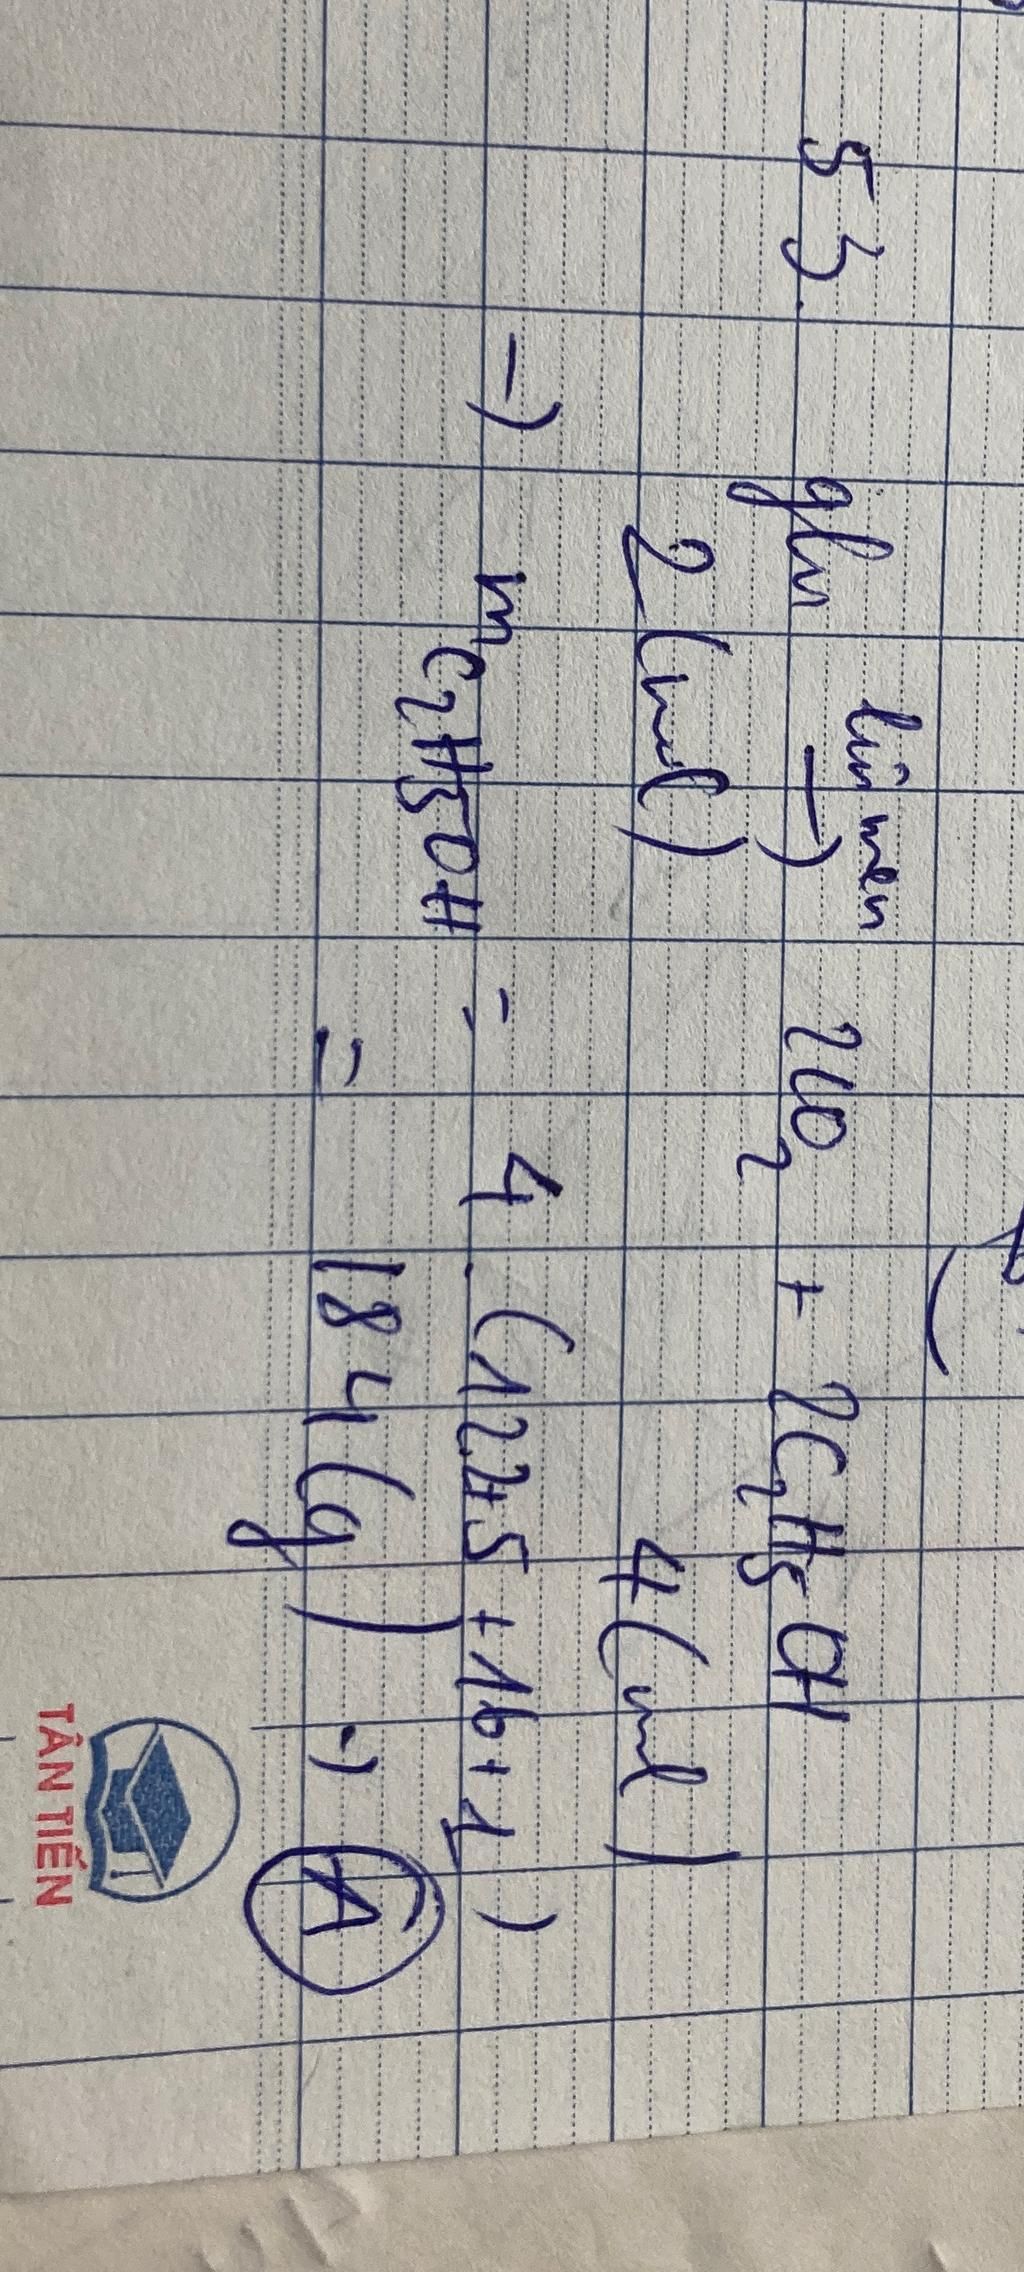 lên men
53. glu → 2CO2 + 2C2H5OH
2 (mol) 4 (mol)
→ mC2H5OH = 4. (12.2+5 +16+1)
= 184 (g) → A
TÂN TIẾN